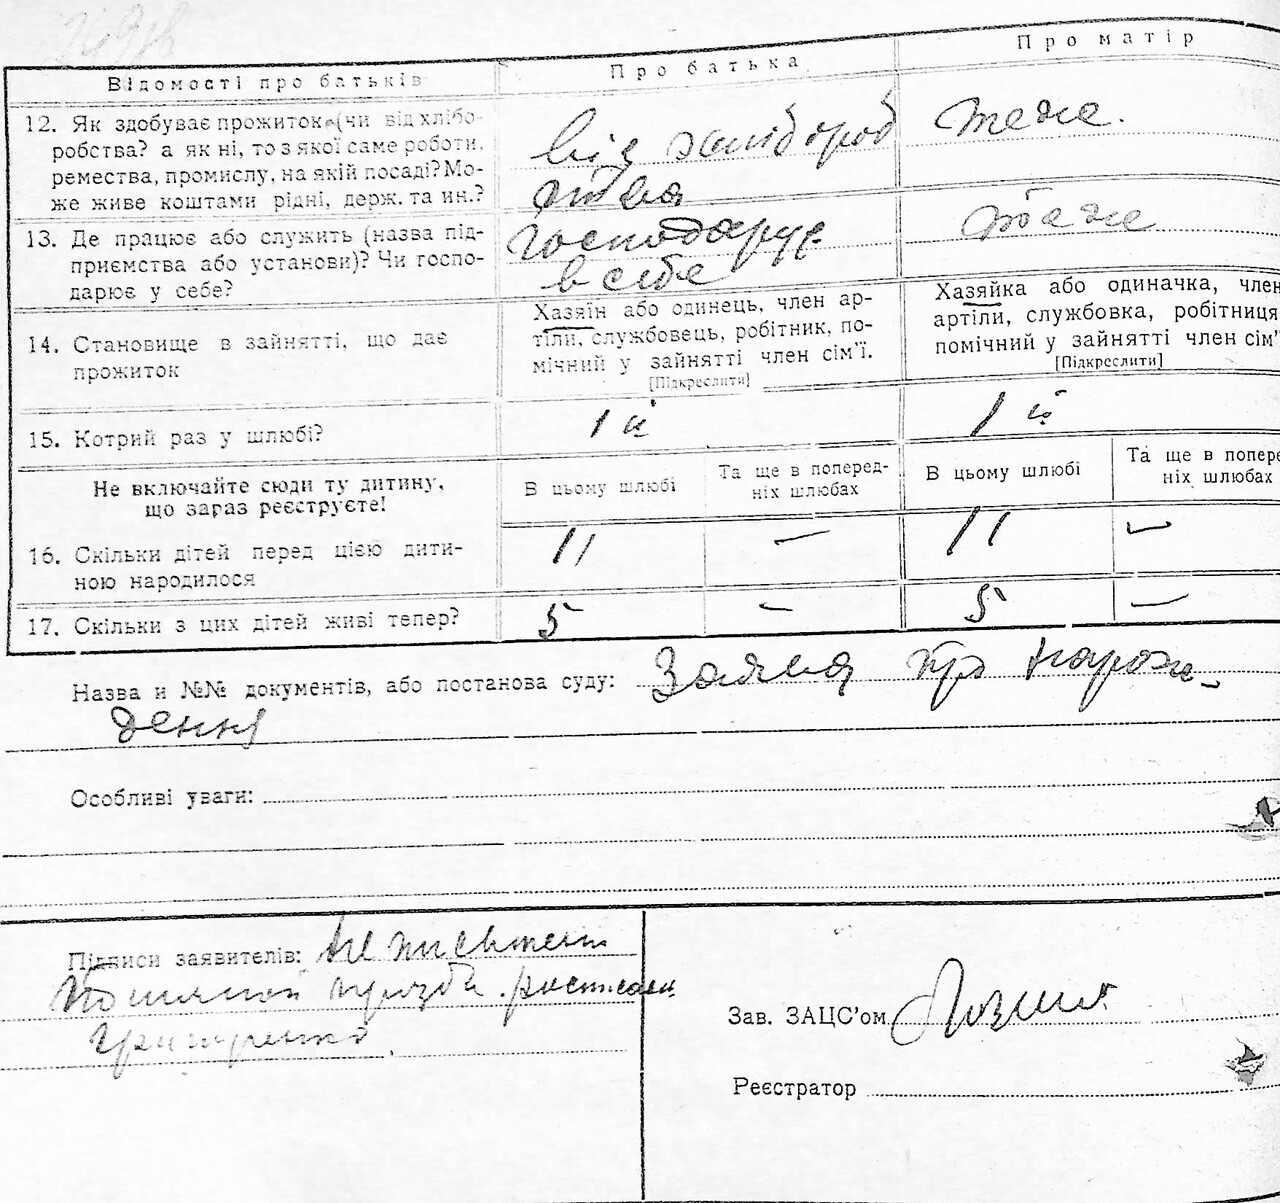 Відомості про батьків
Про батька
Про матір
12. Як здобуває прожиток (чи від хлібо-
робства? а як ні, то з якої саме роботи,
ремества, промислу, на якій посаді? Мо-
же живе коштами рідні, держ. та ин.?
від хлібороб
ства
теже.
13. Де працює або служить (назва під-
приємства або установи)? Чи госпо-
дарює у себе?
Господарує
в себе
теже
14. Становище в зайнятті, що дає
прожиток
Хазяїн або одинець, член ар-
тіли, службовець, робітник, по-
мічний у зайнятті член сім'ї.
[Підкреслити]
Хазяйка або одиначка, член
артіли, службовка, робітниця
помічний у зайнятті член сім'
[Підкреслити]
15. Котрий раз у шлюбі?
1 й
1 й
Не включайте сюди ту дитину,
що зараз реєструєте!
В цьому шлюбі
Та ще в поперед-
ніх шлюбах
В цьому шлюбі
Та ще в попере
ніх шлюбах
16. Скільки дітей перед цією дити-
ною народилося
11
—
11
—
17. Скільки з цих дітей живі тепер?
5
—
5
—
Назва и №№ документів, або постанова суду: Заява про нарож-
дення
Особливі уваги:
Підписи заявителів: Не письмен
прозьби росписався
Григуренко
Зав. ЗАЦС'ом
Реєстратор